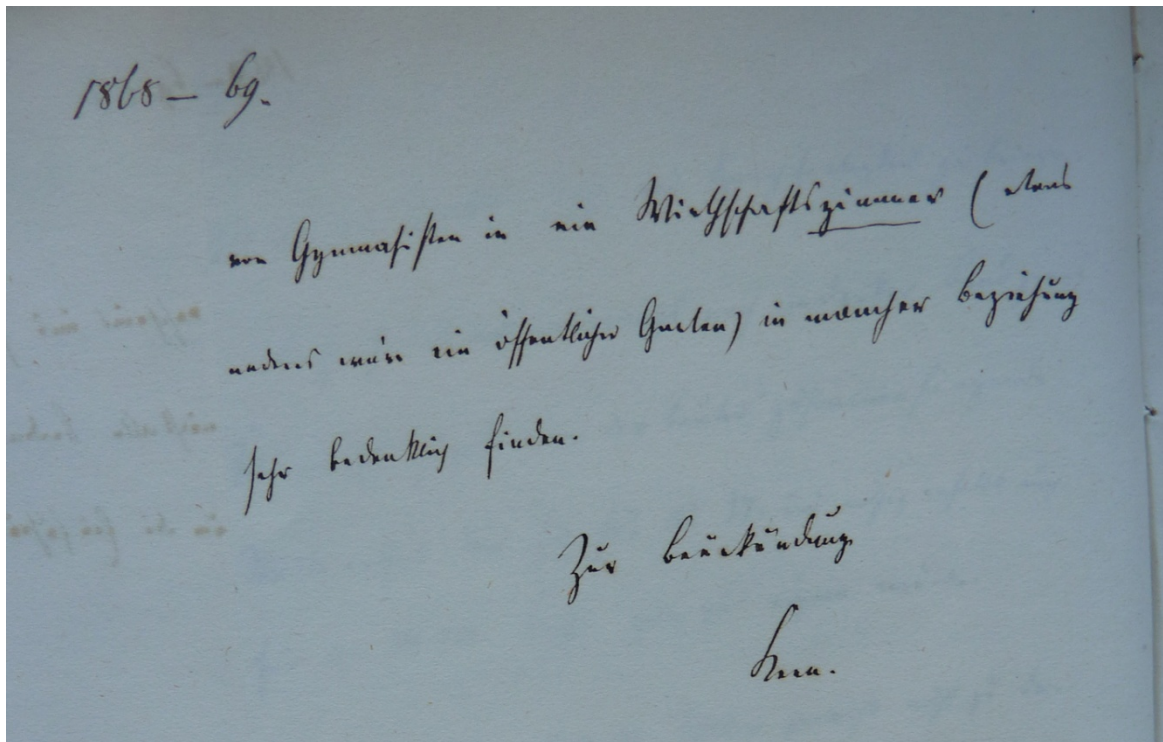 1868 – 69.
von Gymnasisten in ein Wirthschaftszimmer ( etwas
anderes wäre ein öffentlicher Garten) in mancher Beziehung
sehr bedenklich finden.
Zur Beurkundung
Kern.